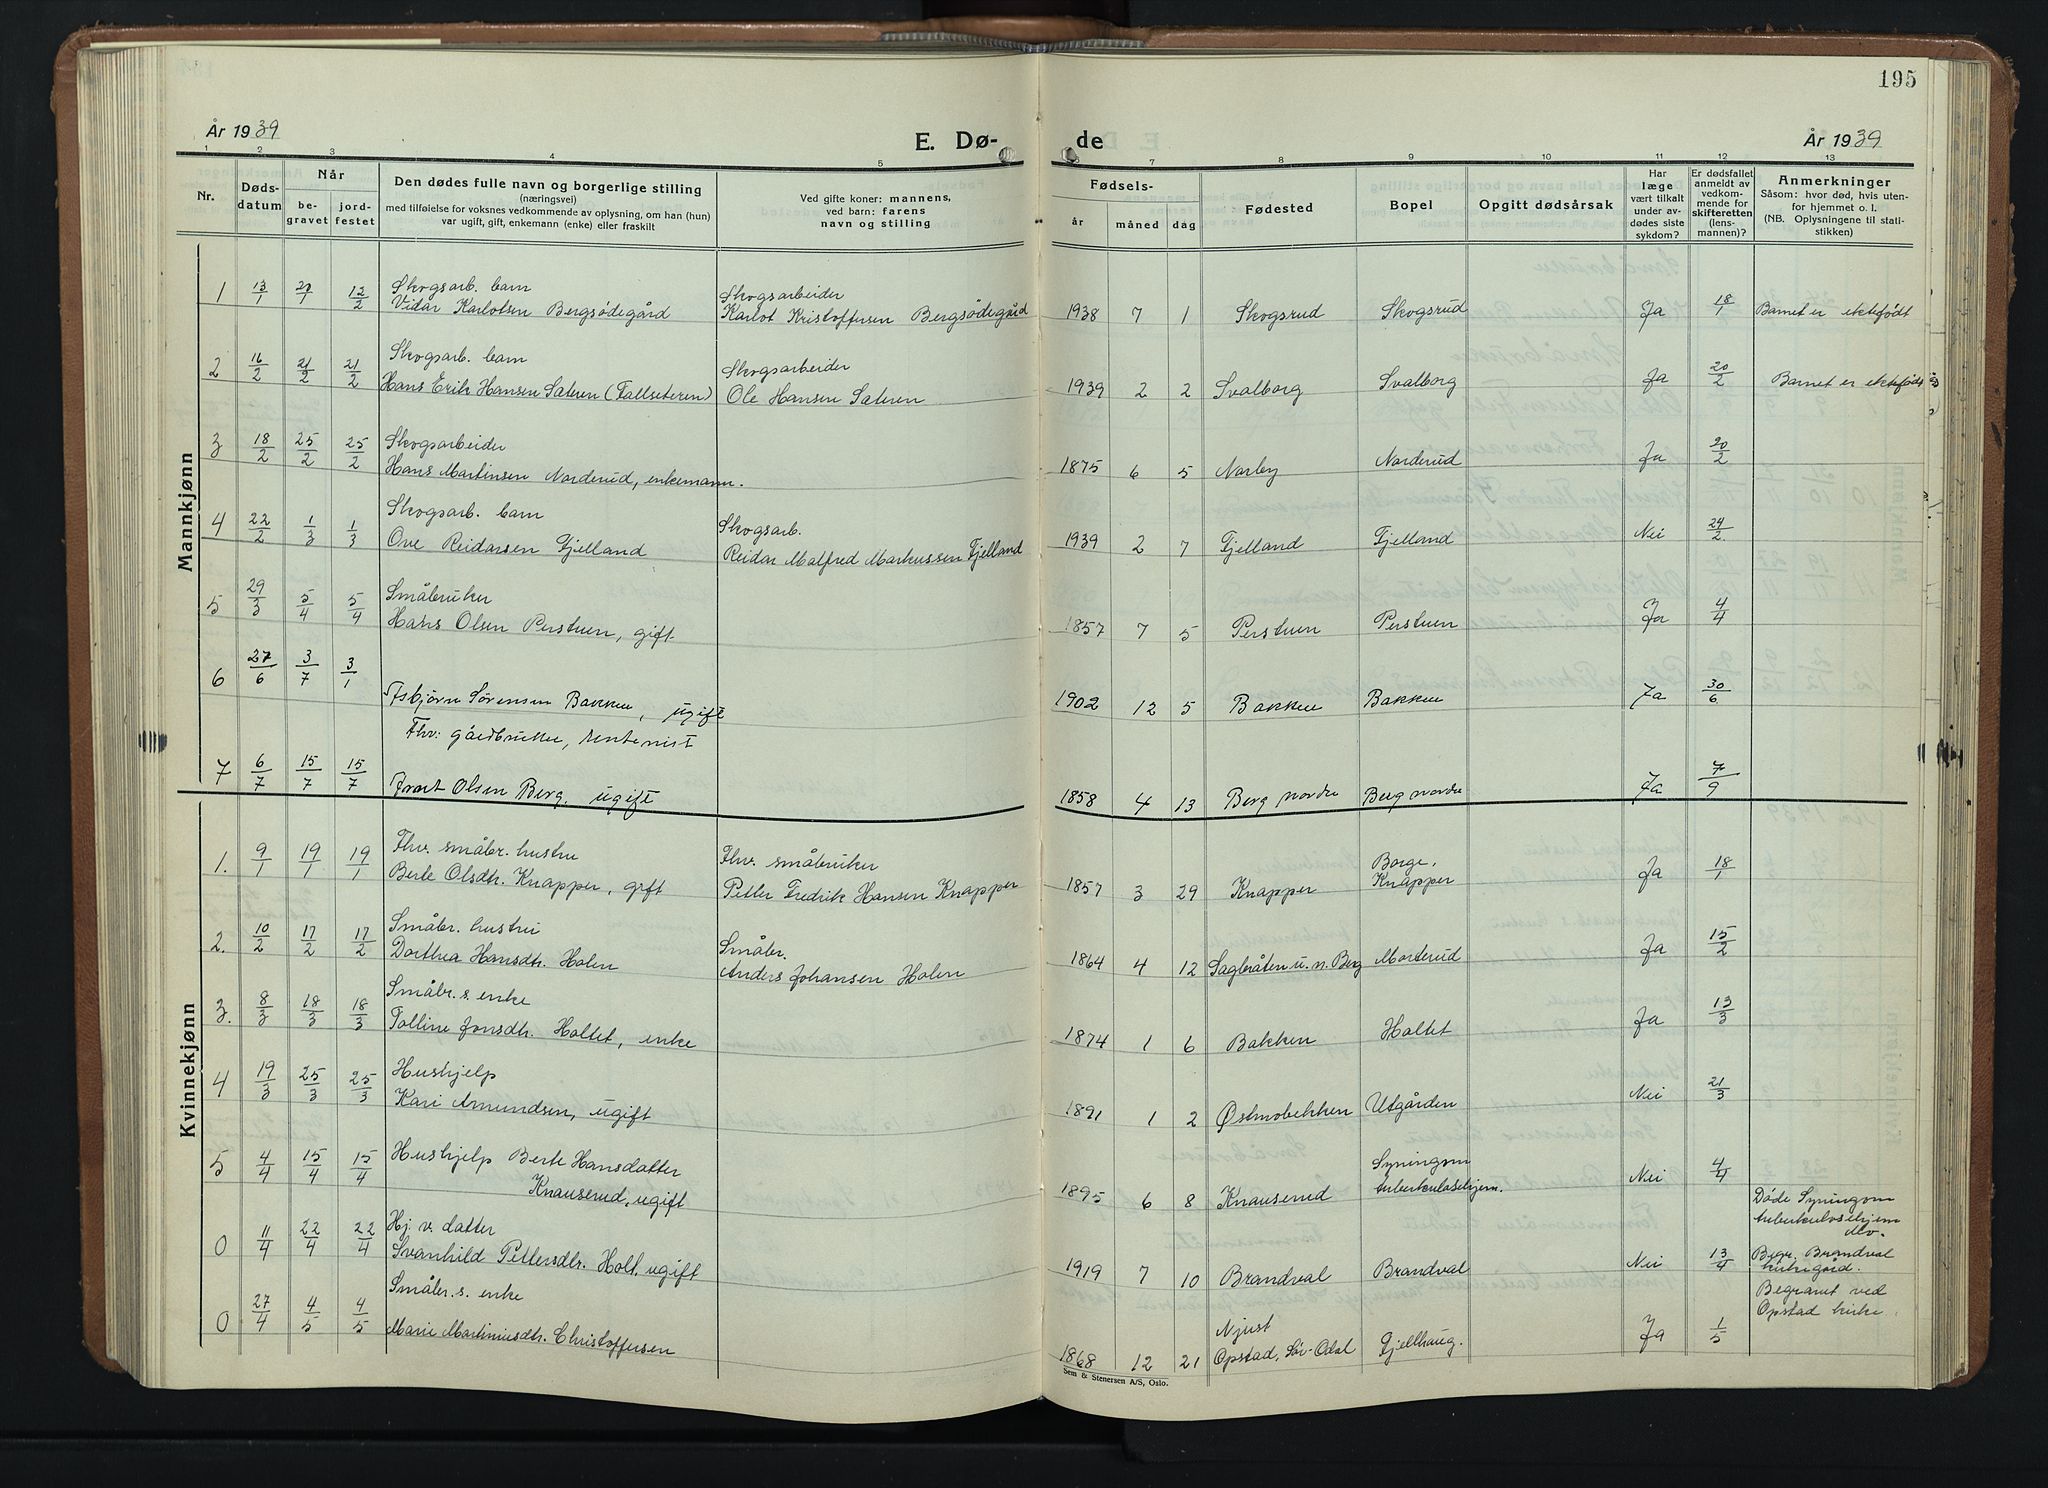 195
År 1939
E. Dø-
de
År 1939
1 2 3 4 5
6 7 8 9 10 11 12 13
Nr.
Døds-
datum
Når
be-
gravet
jord-
festet
Den dødes fulle navn og borgerlige stilling
(næringsvei)
med tilføielse for voksnes vedkommende av oplysning, om han (hun)
var ugift, gift, enkemann (enke) eller fraskilt
Ved gifte koner: mannens,
ved barn: farens
navn og stilling
Fødsels-
år måned dag
Fødested
Bopel
Opgitt dødsårsak
Har
læge
vært tilkalt
under av-
dødes siste
sykdom?
Er dødsfallet
anmeldt av
vedkom-
mende for
skifteretten
(lens-
mannen)?
Anmerkninger
Såsom: hvor død, hvis uten-
for hjemmet o. l.
(NB. Oplysningene til stati-
stikken)
Mannkjønn
1 13/1 20/1 12/2 Skogsarb. barn Skogsarbeider
Vidar Karlotsen Bergsødegård Karlot Kristoffersen Bergsødegård 1938 7 1 Skogsrud Skogsrud Ja 18/1 Barnet er ektefødt
2 16/2 21/2 21/2 Skogsarb. barn Skogsarbeider
Hans Erik Hansen Sæteren (Fallseteren) Ole Hansen Sæteren 1939 2 2 Svalborg Svalborg Ja 20/2 Barnet er ektefødt
3 18/2 25/2 25/2 Skogsarbeider
Hans Martinsen Norderud, enkemann. 1875 6 5 Norby Norderud Ja 20/2
4 22/2 1/3 1/3 Skogsarb. barn Skogsarb.
Ove Reidarsen Fjelland Reidar Malfred Markussen Fjelland 1939 2 7 Fjelland Fjelland Nei 24/2
5 29/3 5/4 5/4 Småbruker
Hans Olsen Perstuen, gift 1857 7 5 Perstuen Perstuen Ja 4/4
6 27/6 3/7 3/1
Asbjørn Sørensen Bakken, ugift 1902 12 5 Bakken Bakken Ja 30/6
Fhv. gårdbruker, rentenist
7 6/7 15/7 15/7 Olsen Berg, ugift 1858 4 13 Berg nordre Berg nordre Ja 7/9
Kvinnekjønn
1. 9/1 19/1 19/1 Fhv. småbr. hustru Fhv. småbruker Borge,
Berte Olsdtr. Knapper, gift Petter Fredrik Hansen Knapper 1857 3 29 Knapper Knapper Ja 18/1
2. 10/2 17/2 17/2 Småbr. hustru Småbr.
Dorthea Hansdtr. Holen Anders Johansen Holen 1864 4 12 Sagbråten u. n. Berg Morterud Ja 15/2
3. 8/3 18/3 18/3 Småbr. s. enke
Tolline Jonsdtr. Holtet, enke 1874 1 6 Bakken Holtet Ja 13/3
4 19/3 25/3 25/3 Hushjelp
Kari Amundsen, ugift 1891 1 2 Østmobekken Utgården Nei 21/3
5 4/4 15/4 15/4 Hushjelp Berte Hansdatter Syningom
Knauserud, ugift 1895 6 8 Knauserud tuberkulosehjem. Nei 4/4 Døde Syningom
tuberkulosehjem
0 11/4 22/4 22/4 Hj. v. datter
Svanhild Pettersdtr. Holt, ugift 1919 7 10 Brandval Brandval Nei 13/4 Begr. Brandval
kirkegård.
0 27/4 4/5 4/5 Småbr. s. enke Begravet ved
Opstad kirke.
Marie Martiniusdtr. Christoffersen 1868 12 21 Njust
Opstad, Sør-Odal Fjellhaug. Ja 1/5
Sem & Stenersen A/S, Oslo.